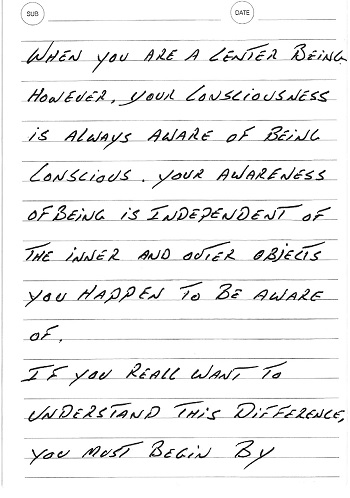 SUB DATE
WHEN YOU ARE A CENTER BEING.
HOWEVER, YOUR CONSCIOUSNESS
IS ALWAYS AWARE OF BEING
CONSCIOUS. YOUR AWARENESS
OF BEING IS INDEPENDENT OF
THE INNER AND OUTER OBJECTS
YOU HAPPEN TO BE AWARE
OF.
IF YOU REALL WANT TO
UNDERSTAND THIS DIFFERENCE,
YOU MUST BEGIN BY